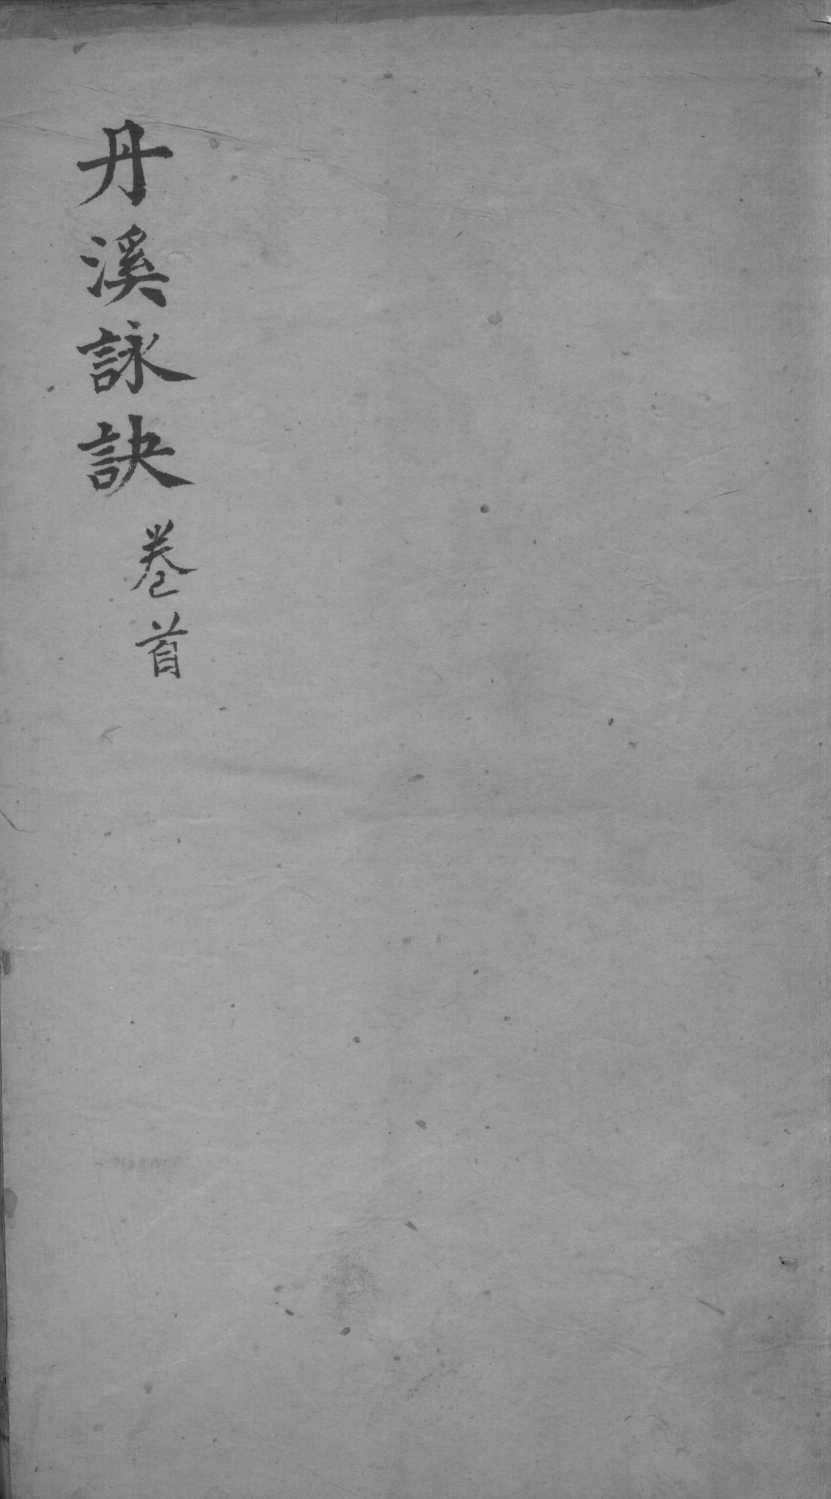 丹溪詠訣卷首